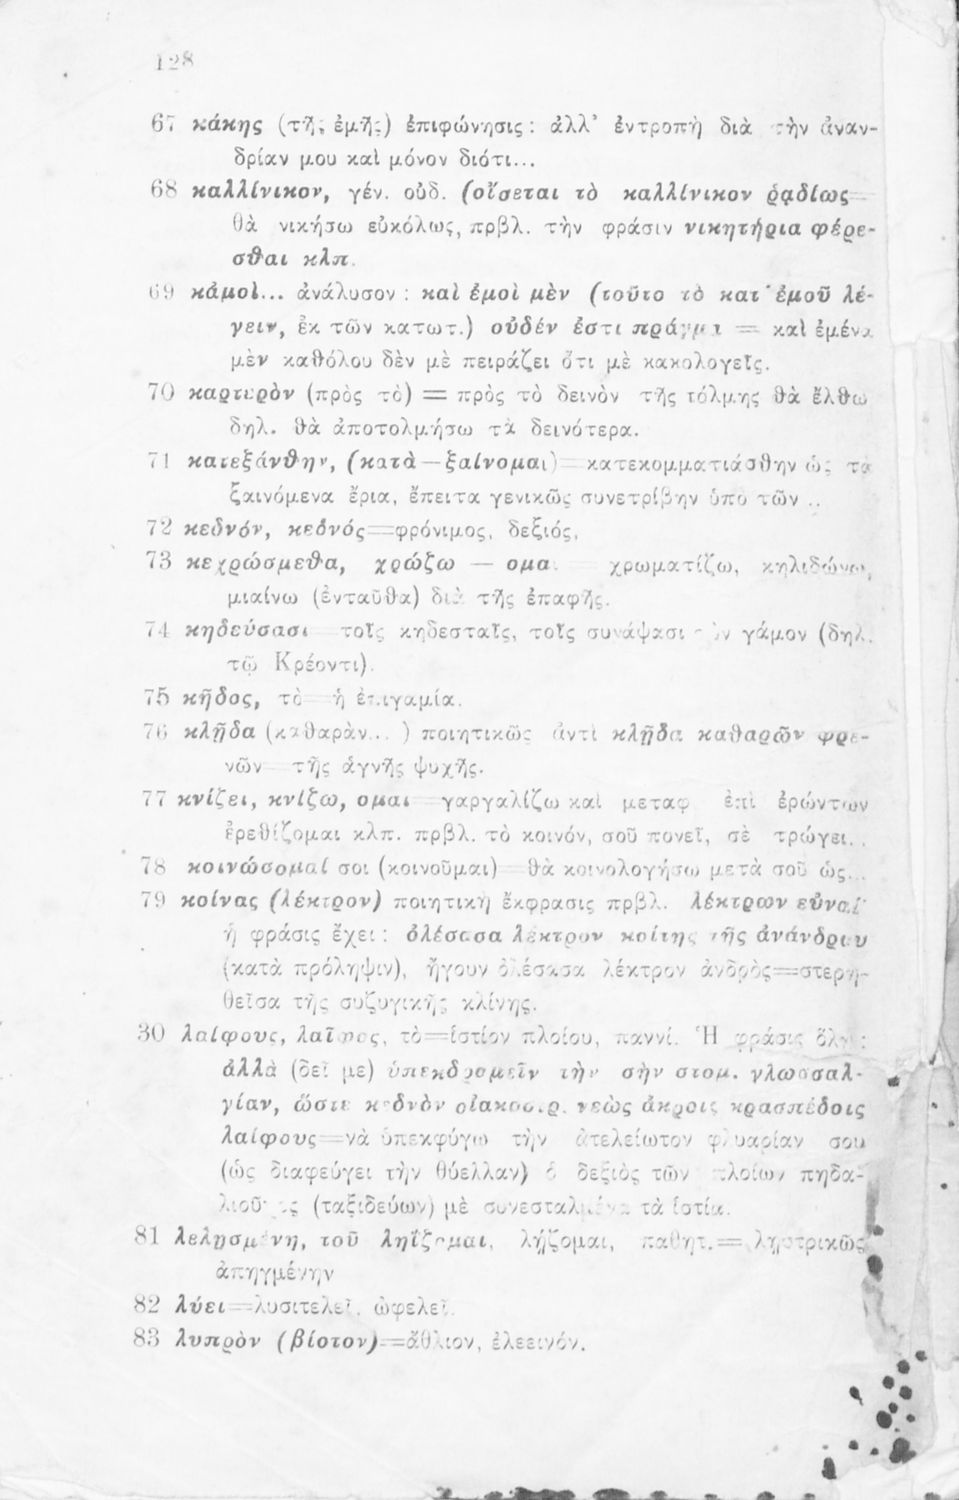 128
67 κάκης (τῆς ἐμῆς) ἐπιφώνησις: ἀλλ' ἐντροπὴ διὰ τὴν ἀναν-
δρίαν μου καὶ μόνον διότι...
68 καλλίνικον, γέν. οὐδ. (οἴσεται τὸ καλλίνικον ῥᾳδίως=
θὰ νικήσω εὐκόλως, πρβλ. τὴν φράσιν νικητήρια φέρε-
σθαι κλπ.
69 κἀμοὶ... ἀνάλυσον: καὶ ἐμοὶ μὲν (τοῦτο τὸ κατ' ἐμοῦ λέ-
γειν, ἐκ τῶν κατωτ.) οὐδέν ἐστι πράγμα = καὶ ἐμένα
μὲν καθόλου δὲν μὲ πειράζει ὅτι μὲ κακολογεῖς.
70 καρτερὸν (πρὸς τὸ) = πρὸς τὸ δεινὸν τῆς τόλμης θὰ ἔλθω
δηλ. θὰ ἀποτολμήσω τὰ δεινότερα.
71 κατεξάνθην, (κατὰ—ξαίνομαι)=κατεκομματιάσθην ὡς τὰ
ξαινόμενα ἔρια, ἔπειτα γενικῶς συνετρίβην ὑπὸ τῶν ..
72 κεδνόν, κεδνός=φρόνιμος, δεξιός,
73 κεχρώσμεθα, χρώζω — ομαι = χρωματίζω, κηλιδώνω,
μιαίνω (ἐνταῦθα) διὰ τῆς ἐπαφῆς.
74 κηδεύσασι=τοῖς κηδεσταῖς, τοῖς συνάψασι τὸν γάμον (δηλ.
τῷ Κρέοντι).
75 κῆδος, τὸ=ἡ ἐπιγαμία.
76 κλῇδα (καθαρὰν... ) ποιητικῶς ἀντὶ κλῇδα καθαρῶν φρε-
νῶν=τῆς ἁγνῆς ψυχῆς.
77 κνίζει, κνίζω, ομαι=γαργαλίζω καὶ μεταφ. ἐπὶ ἐρώντων
ἐρεθίζομαι κλπ. πρβλ. τὸ κοινόν, σοῦ πονεῖ, σὲ τρώγει..
78 κοινώσομαί σοι (κοινοῦμαι)=θὰ κοινολογήσω μετὰ σοῦ ὡς..
79 κοίνας (λέκτρον) ποιητικὴ ἔκφρασις πρβλ. λέκτρων εὐναί
ἡ φράσις ἔχει: ὀλέσασα λέκτρον κοίτης τῆς ἀνάνδρου
(κατὰ πρόληψιν), ἤγουν ὀλέσασα λέκτρον ἀνδρὸς=στερη-
θεῖσα τῆς συζυγικῆς κλίνης.
30 λαίφους, λαῖφος, τὸ=ἱστίον πλοίου, παννί. Ἡ φράσις ὅλη:
ἀλλὰ (δεῖ με) ὑπεκδρομεῖν τὴν σὴν στομ. γλωσσαλ-
γίαν, ὥστε κεδνὸν οἰακοστρ. νεὼς ἄκροις κρασπέδοις
λαίφους=νὰ ὑπεκφύγω τὴν ἀτελείωτον φλυαρίαν σου
(ὡς διαφεύγει τὴν θύελλαν) ὁ δεξιὸς τῶν πλοίων πηδα-
λιοῦχος (ταξιδεύων) μὲ συνεσταλμένα τὰ ἱστία.
81 λελῃσμένη, τοῦ ληΐζομαι, λῄζομαι, παθητ.=λῃστρικῶς
ἀπηγμένην
82 λύει=λυσιτελεῖ, ὠφελεῖ.
83 λυπρὸν (βίοτον)=ἄθλιον, ἐλεεινόν.